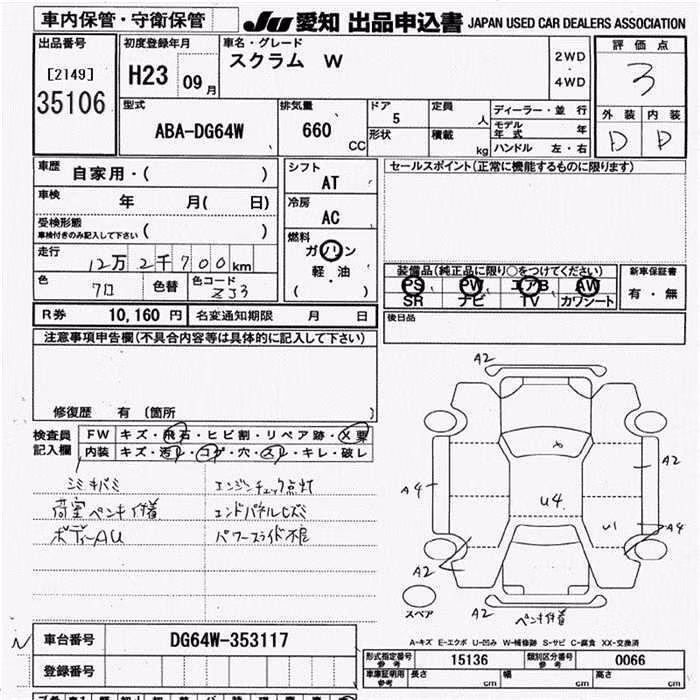 車内保管・守衛保管
JU 愛知 出品申込書 JAPAN USED CAR DEALERS ASSOCIATION
出品番号
[2149]
35106
初度登録年月
H23 09月
車名・グレード
スクラム W
2WD
・
4WD
評価点
3
外装 内装
D D
型式
ABA-DG64W
排気量
660 CC
ドア
5
形状
定員
人
積載
kg
ディーラー・並行
モデル年式 年
ハンドル 左・右
車歴
自家用・( )
車検
年 月( 日)
受検形態
車検付きのみ記入して下さい ( )
走行
12万2千700km
色
クロ
色替
色コード
ZJ3
シフト
AT
冷房
AC
燃料
ガソリン
・
軽・油
( )
セールスポイント(正常に機能するものに限ります)
装備品(純正品に限り○をつけてください)
PS PW エアB AW
SR ナビ TV カワシート
新車保証書
有・無
後日品
R券 10,160 円 名変通知期限 月 日
注意事項申告欄(不具合内容等は具体的に記入して下さい)
修復歴 有 〔箇所 〕
検査員
記入欄
FW キズ・飛石・ヒビ割・リペア跡・X要
内装 キズ・汚れ・コゲ・穴・スレ・キレ・破レ
ミミキバミ
荷室ペンキ付着
ボディーAU
エンジンチェック点灯
エンドパネルヒズミ
パワースライド不良
A2
A4
A2
A2
U4
U1
A4
A2
スペア
ペンキ付着
A-キズ E-エクボ U-凹み W-補修跡 S-サビ C-腐食 XX-交換済
N
車台番号 DG64W-353117
登録番号
形式指定番号 参考 15136 類別区分番号 参考 0066
車庫証明用 参考 長さ cm 幅 cm 高さ cm